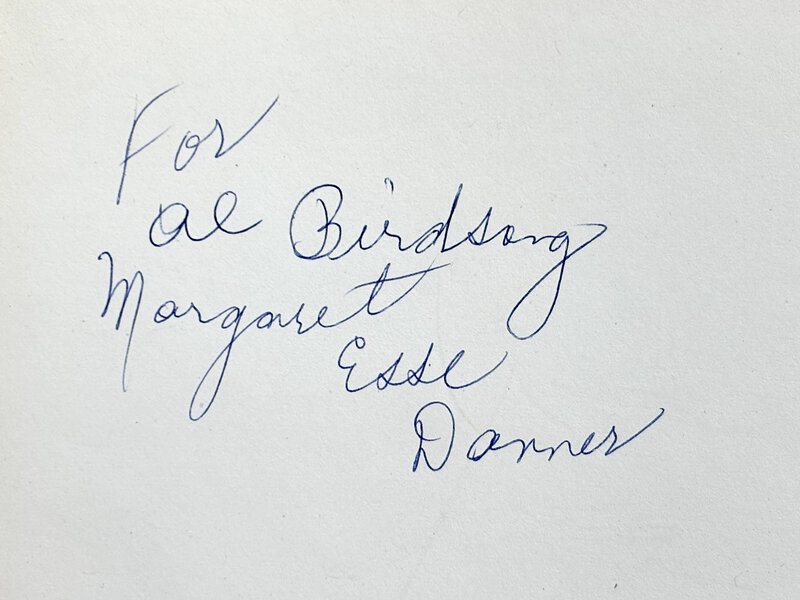 For
Al Birdsong
Margaret
Esse
Danner